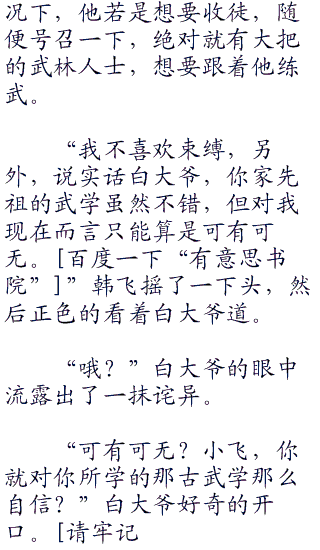 况下，他若是想要收徒，随
便号召一下，绝对就有大把
的武林人士，想要跟着他练
武。
“我不喜欢束缚，另
外，说实话白大爷，你家先
祖的武学虽然不错，但对我
现在而言只能算是可有可
无。[百度一下“有意思书
院”]”韩飞摇了一下头，然
后正色的看着白大爷道。
“哦？”白大爷的眼中
流露出了一抹诧异。
“可有可无？小飞，你
就对你所学的那古武学那么
自信？”白大爷好奇的开
口。[请牢记